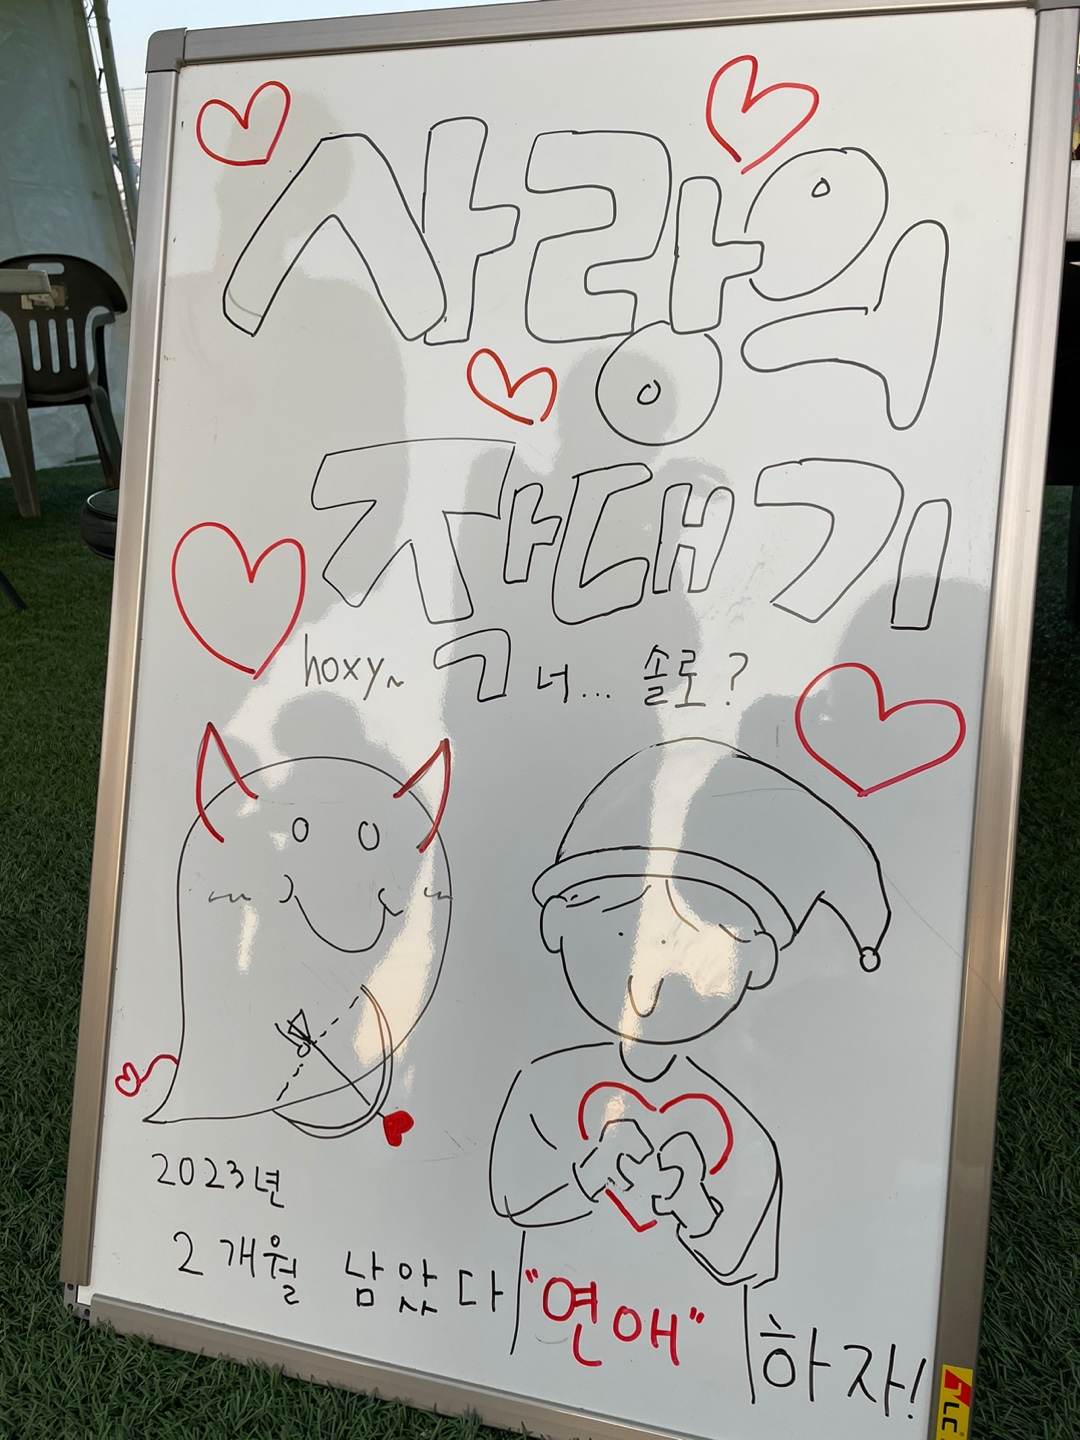 사랑의
작대기
hoxy~ 너... 솔로?
2023년
2개월 남았다 "연애" 하자!